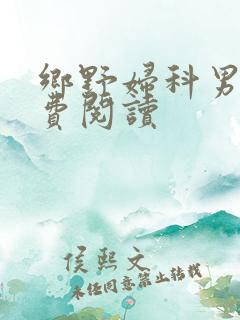 鄉野婦科男
費閱讀
侯熙文
未經同意禁止轉載